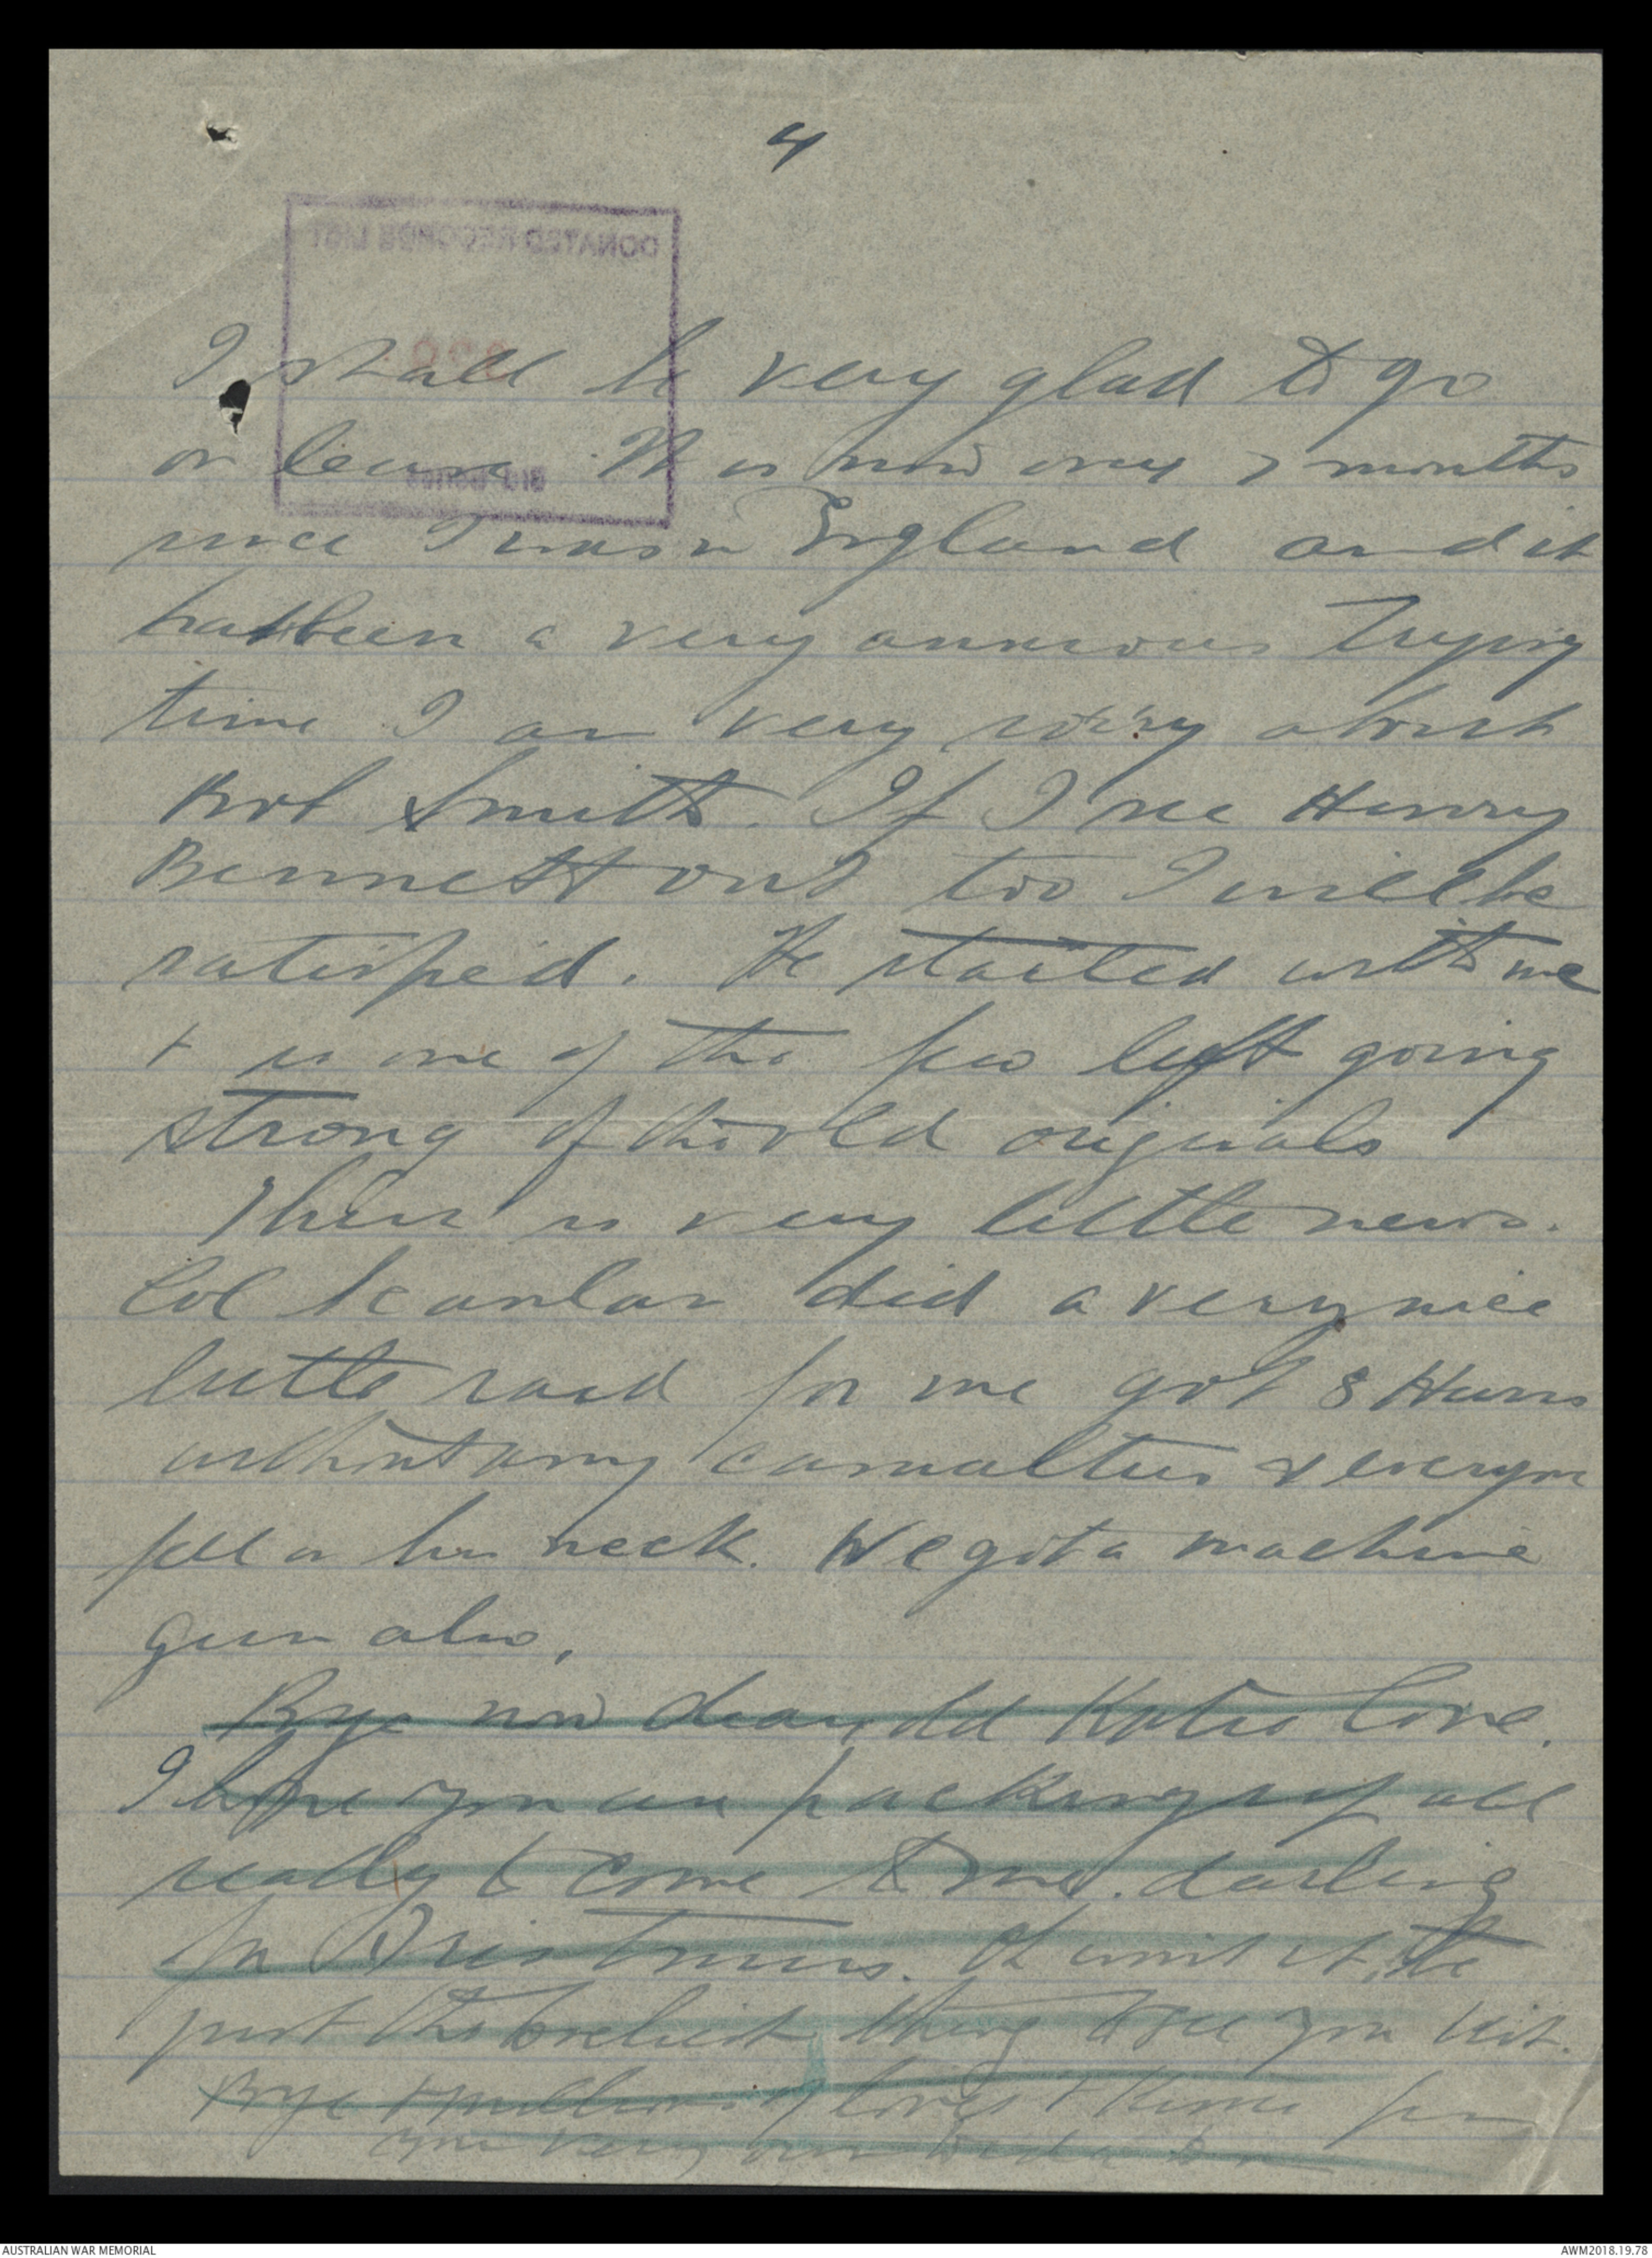 4
DONATED RECORDS LIST
I shall be very glad to go
on leave. It is now over 7 months
since I was in England and it
has been a very anxious trying
time I am very sorry about
Bob Smith. If I see Henry
Bennett out too I will be
satisfied. He started with me
+ is one of the few left going
strong of the old originals
There is very little news.
Col Scanlan did a very nice
little raid for me got 8 Huns
without any casualties & everyone
fell on his neck. We got a machine
gun also.
Bye now dear old Katie love.
I hope you are packing up all
ready to come to me darling
for Christmas. Oh wont it be
just the loveliest thing to see you Kit.
Bye + millions of loves + kisses from
your very own
AUSTRALIAN WAR MEMORIAL
AWM2018.19.78